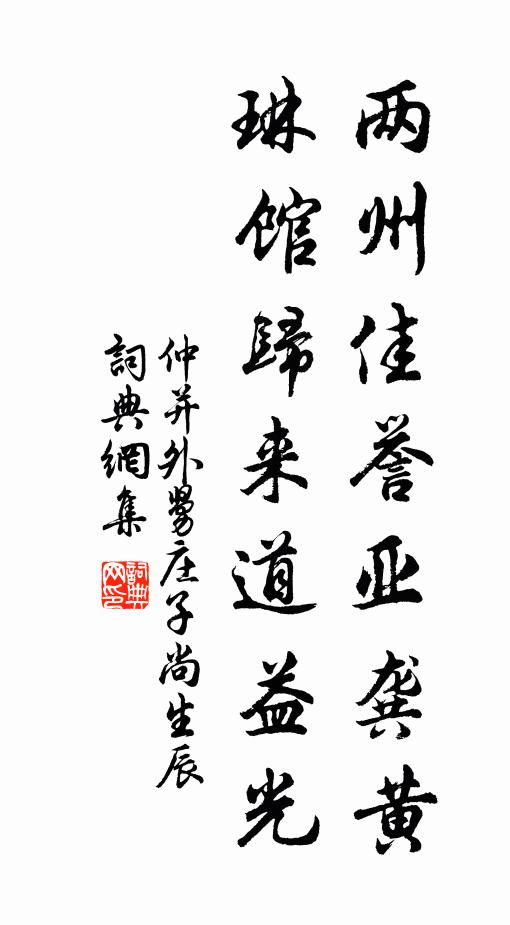 两州佳誉亚龚黄
琳馆歸来道益光
仲并外舅庄子尚生辰
詞典網集
詞典网印